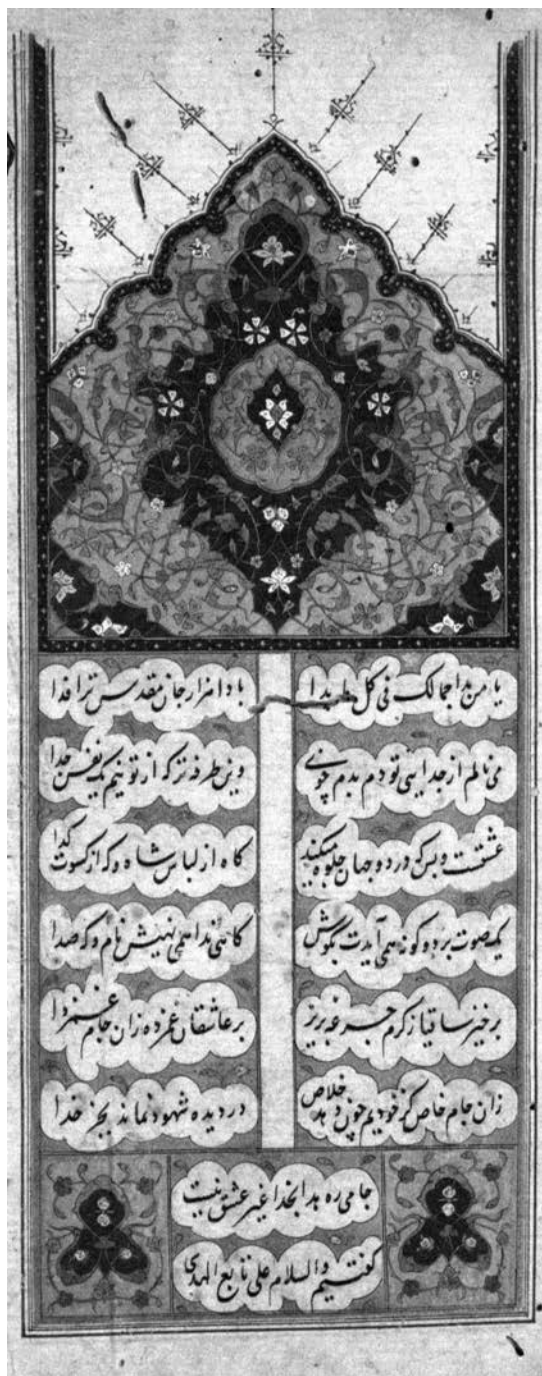 یا من بدا جمالک فی کل ما بدا
بادا هزار جان مقدس ترا فدا
می نالم از جدایی تو دم بدم چونی
وین طرفه تر که از تو نیم یک نفس جدا
عشقست وبس که در دو جهان جلوه میکند
گاه از لباس شاه و گه از کسوت گدا
یک صوت بر دو گونه همی آیدت بگوش
گاهی ندا همی نهیش نام و گه صدا
برخیز ساقیا ز کرم جرعه بریز
بر عاشقان غمزده زان جام غمزدا
زان جام خاص کز خودیم چون دهد خلاص
در دیده شهود نماند بجز خدا
جامی ره هدا بخدا غیر عشق نیست
گفتیم والسلام علی تابع الهدی